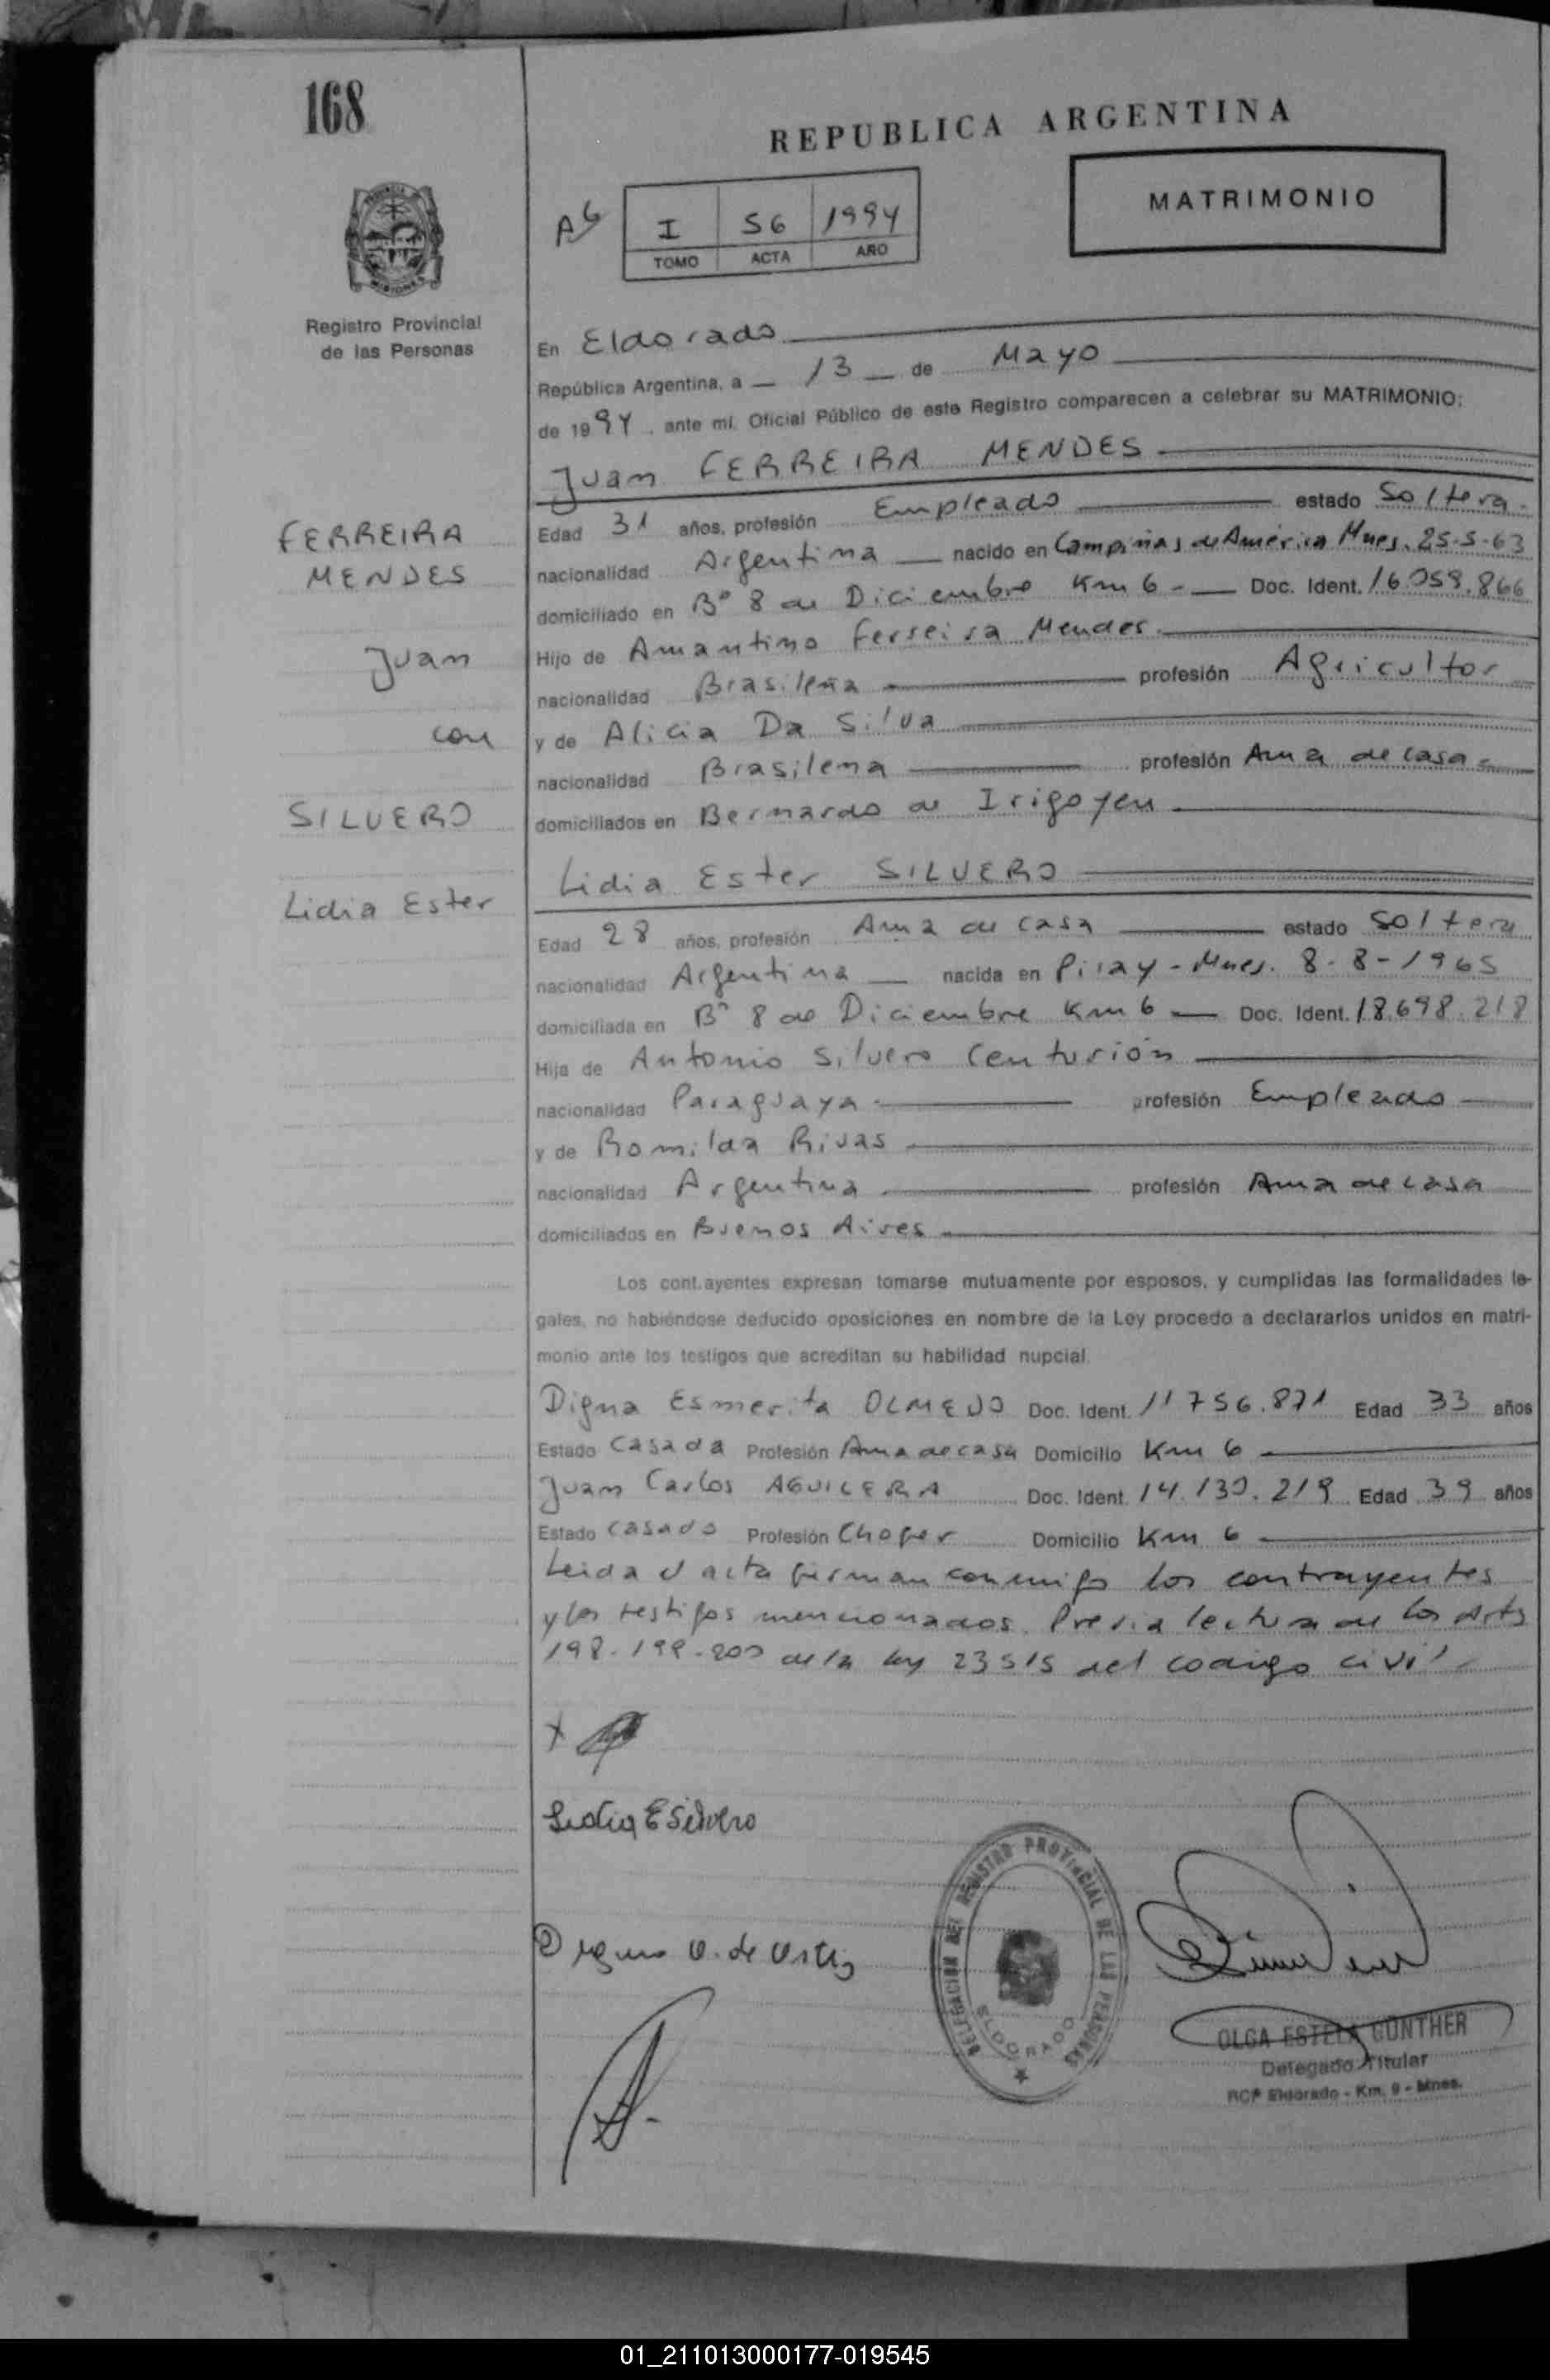 168
REPUBLICA ARGENTINA
MATRIMONIO
I 56 1994
TOMO ACTA AÑO
Registro Provincial
de las Personas
En Eldorado
República Argentina, a 13 de Mayo
de 1994, ante mí, Oficial Público de este Registro comparecen a celebrar su MATRIMONIO:
Juan FERREIRA MENDES
FERREIRA
MENDES
Juan
con
SILVERO
Lidia Ester
Edad 31 años, profesión Empleado estado Soltero
nacionalidad Argentina nacido en Campiñas de América Mnes. 25-5-63
domiciliado en Bº 8 de Diciembre Km 6 - Doc. Ident. 16.059.866
Hijo de Amantino Ferreira Mendes
nacionalidad Brasileña profesión Agricultor
y de Alicia Da Silva
nacionalidad Brasilena profesión Ama de casa
domiciliados en Bernardo de Irigoyen
Lidia Ester SILVERO
Edad 28 años, profesión Ama de casa estado Soltera
nacionalidad Argentina nacida en Piray - Mnes. 8-8-1965
domiciliada en Bº 8 de Diciembre Km 6 Doc. Ident. 18.698.218
Hija de Antonio Silvero Centurión
nacionalidad Paraguaya profesión Empleado
y de Romilda Rivas
nacionalidad Argentina profesión Ama de casa
domiciliados en Buenos Aires
Los contrayentes expresan tomarse mutuamente por esposos, y cumplidas las formalidades le-
gales, no habiéndose deducido oposiciones en nombre de la Ley procedo a declararlos unidos en matri-
monio ante los testigos que acreditan su habilidad nupcial.
Digna Esmerita OLMEDO Doc. Ident. 11756.871 Edad 33 años
Estado Casada Profesión Ama de casa Domicilio Km 6
Juan Carlos AGUILERA Doc. Ident. 14.130.219 Edad 39 años
Estado Casado Profesión Chofer Domicilio Km 6
Leida el acta firman conmigo los contrayentes
y los testigos mencionados. Previa lectura de los Arts
198-199-200 de la ley 23515 del codigo civil
Lidia E Silvero
Digna O. de Ortiz
DELEGACION DEL REGISTRO PROVINCIAL DE LAS PERSONAS
ELDORADO
OLGA ESTELA GÜNTHER
Delegado Titular
RCP Eldorado - Km. 9 - Mnes.
01_211013000177-019545